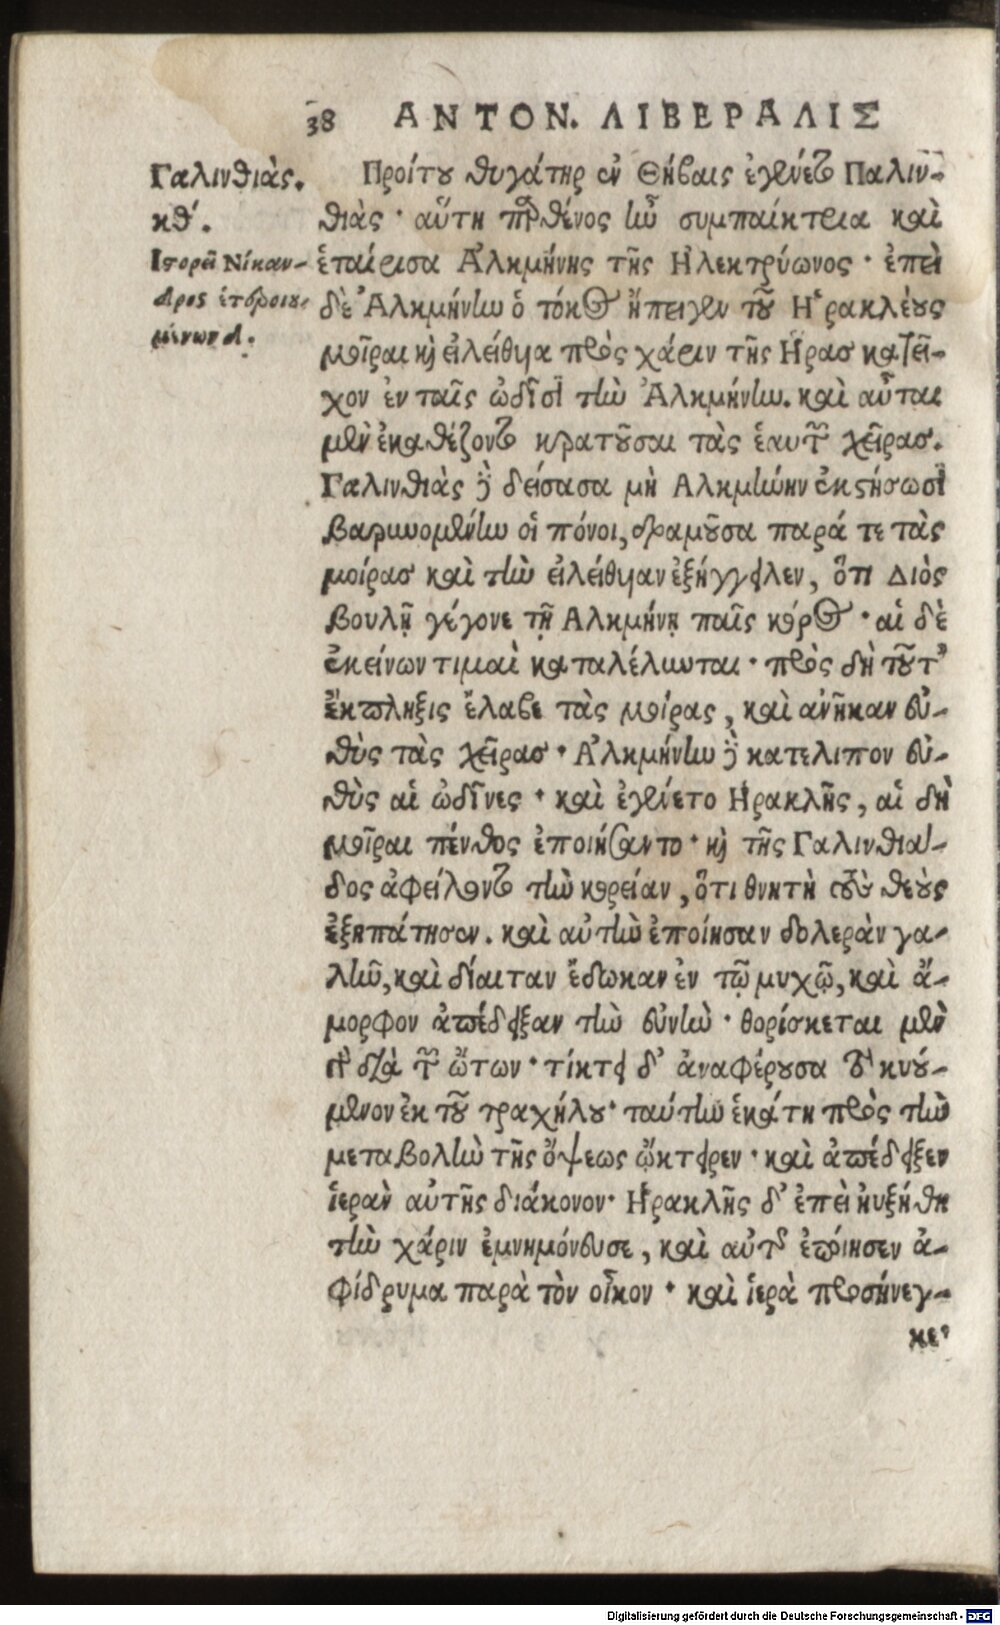 38 ΑΝΤΟΝ. ΛΙΒΕΡΑΛΙΣ
Γαλινθιὰς.
κθ'.
Ἱστορεῖ Νίκαν-
δρος ἑτεροιου-
μένων δ.
Προίτου θυγάτηρ ἐν Θήβαις ἐγένετο Παλιν-
θιὰς· αὕτη παρθένος ἦν συμπαίκτρια καὶ
ἑταίρισα Ἀλκμήνης τῆς Ἠλεκτρύωνος· ἐπεὶ
δὲ Ἀλκμήνην ὁ τόκος ἤπειγεν τοῦ Ἡρακλέους
μοῖραι καὶ εἰλείθυα πρὸς χάριν τῆς Ἥρας κατεῖ-
χον ἐν ταῖς ὠδῖσι τὴν Ἀλκμήνην. καὶ αὗται
μὲν ἐκαθέζοντο κρατοῦσαι τὰς ἑαυτῶν χεῖρας.
Γαλινθιὰς δὲ δείσασα μὴ Ἀλκμήνην ἐκστήσωσι
βαρυνομένην οἱ πόνοι, δραμοῦσα παρά τε τὰς
μοίρας καὶ τὴν εἰλείθυιαν ἐξήγγειλεν, ὅτι Διὸς
βουλῇ γέγονε τῇ Ἀλκμήνῃ παῖς κόρος· αἱ δὲ
ἐκείνων τιμαὶ καταλέλυνται· πρὸς δὴ τοῦτ'
ἔκπληξις ἔλαβε τὰς μοίρας, καὶ ἀνῆκαν εὐ-
θὺς τὰς χεῖρας· Ἀλκμήνην δὲ κατέλιπον εὐ-
θὺς αἱ ὠδῖνες· καὶ ἐγένετο Ἡρακλῆς, αἱ δὴ
μοῖραι πένθος ἐποιήσαντο· καὶ τῆς Γαλινθιά-
δος ἀφείλοντο τὴν κορείαν, ὅτι θνητὴ τοὺς θεοὺς
ἐξηπάτησεν. καὶ αὐτὴν ἐποίησαν δολερὰν γα-
λῆν, καὶ δίαιταν ἔδωκαν ἐν τῷ μυχῷ, καὶ ἄ-
μορφον ἀπέδειξαν τὴν εὐνήν· θορίσκεται μὲν
γὰρ διὰ τῶν ὤτων· τίκτει δ' ἀναφέρουσα τὸ κυού-
μενον ἐκ τοῦ τραχήλου· ταύτην ἑκάτη πρὸς τὴν
μεταβολὴν τῆς ὄψεως ᾤκτειρεν· καὶ ἀπέδειξεν
ἱερὰν αὐτῆς διάκονον· Ἡρακλῆς δ' ἐπεὶ ηὐξήθη
τὴν χάριν ἐμνημόνευσε, καὶ αὐτῆς ἐποίησεν ἀ-
φίδρυμα παρὰ τὸν οἶκον· καὶ ἱερὰ προσήνεγ-
κε'
Digitalisierung gefördert durch die Deutsche Forschungsgemeinschaft - DFG